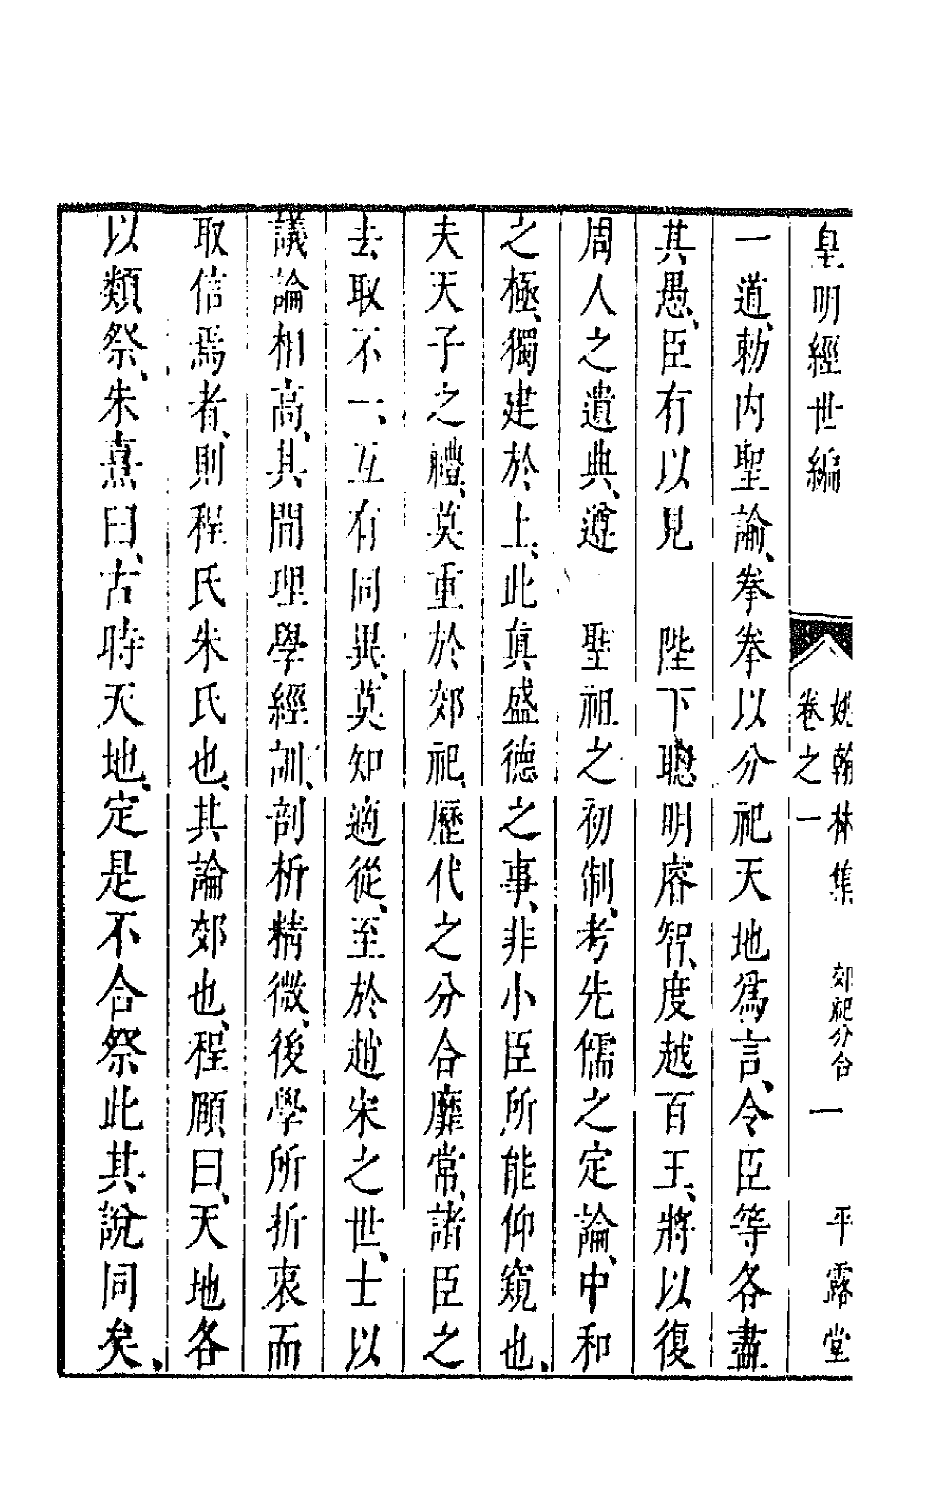 皇明經世編
姚翰林集 郊祀分合 一 平露堂
卷之一
一道、勅內聖諭、拳拳以分祀天地爲言、令臣等各盡
其愚、臣有以見 陛下聰明睿智、度越百王、將以復
周人之遺典、遵 聖祖之初制、考先儒之定論、中和
之極、獨建於上、此眞盛德之事、非小臣所能仰窺也、
夫天子之禮、莫重於郊祀、歷代之分合靡常、諸臣之
去取不一、互有同異、莫知適從、至於趙宋之世、士以
議論相高、其間理學經訓、剖析精微、後學所折衷而
取信焉者、則程氏朱氏也、其論郊也、程頤曰、天地各
以類祭、朱熹曰、古時天地、定是不合祭此其說同矣、